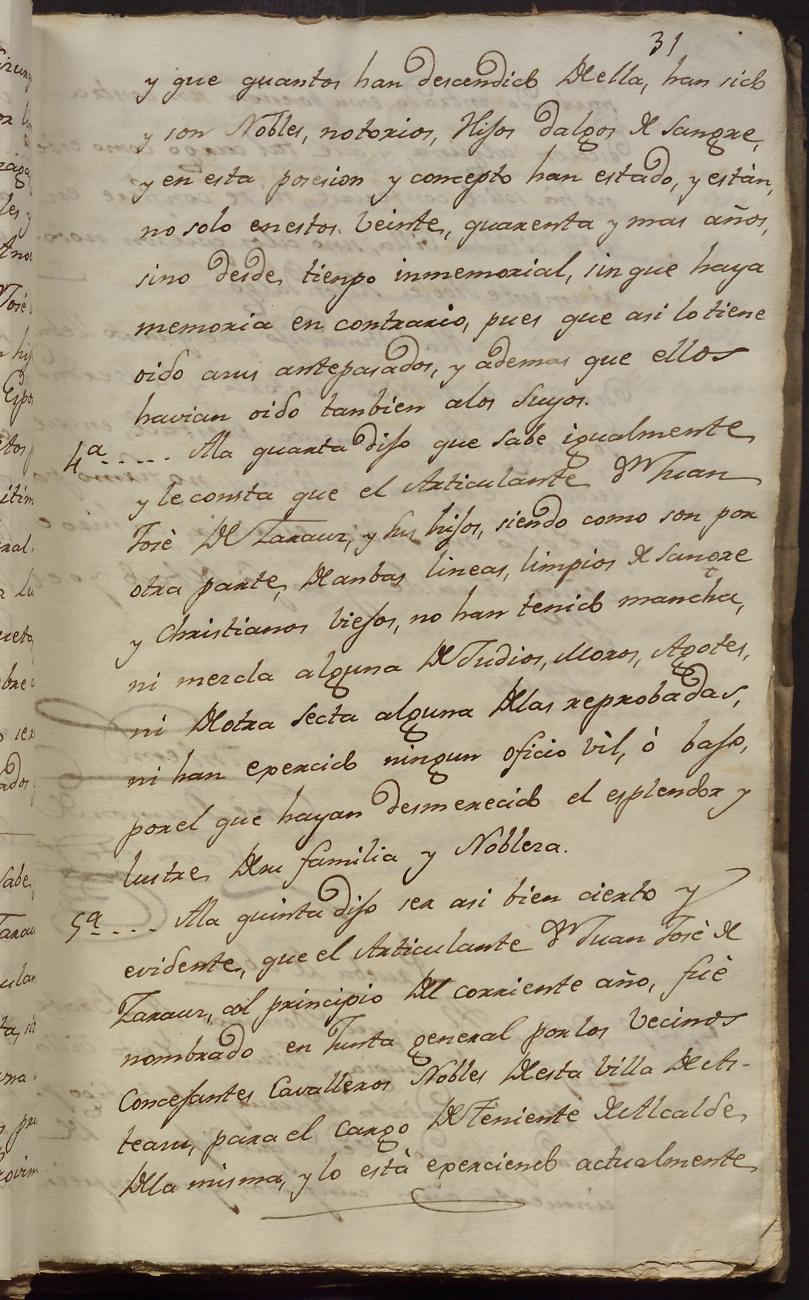 31
y que quantos han descendido de ella, han sido
y son Nobles, notorios, Hijos dalgos de sangre,
y en esta posesion y concepto han estado, y están,
no solo en estos veinte, quarenta y mas años,
sino desde tienpo inmemorial, sin que haya
memoria en contrario, pues que asi lo tiene
oido asus antepasados, y ademas que ellos
havian oido tanbien alos suyos.
4ª.... Ala quarta dijo que sabe igualmente
y le consta que el Articulante Dn Juan
Josè de Zarauz, y sus hijos, siendo como son por
otra parte, de anbas lineas, limpios de sangre
y Christianos viejos, no han tenido mancha,
ni mezcla alguna de Judios, Moros, Agotes,
ni de otra secta alguna delas reprobadas,
ni han exercido ningun oficio vìl, ò bajo,
por el que hayan desmerecido el esplendor y
lustre de su familia y Nobleza.
5ª.... Ala quinta dijo ser asi bien cierto y
evidente, que el Articulante Dn Juan Josè de
Zarauz, al principio del corriente año, fuè
nombrado en Junta general por los Vecinos
Concejantes Cavalleros Nobles de esta Villa de As-
teasu, para el cargo de Teniente de Alcalde
dela misma, y lo està exerciendo actualmente